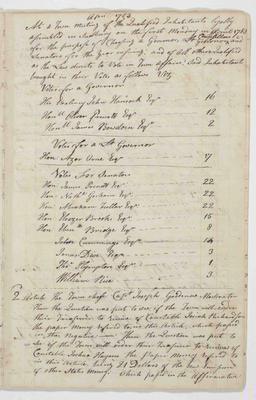 At a Town meeting of the Qualified Inhabitants Legally
assembled in Sudbury on the first Monday in April 1783
for the purpose of Choosing a Governor, Lt Governor and
Senators for the year ensuing, and of all otherwise Qualified
as the Law directs to Vote in Town affairs, Said Inhabitants
brought in their Votes as follows Viz
Votes for a Governor
His Excellency John Hancock Esqr 16
Honble Oliver Prescott Esqr 12
Honble James Bowdoin Esqr 2
Votes for a Lt Governor
Hon Azor Orne Esqr 7
Votes For Senators
Hon James Prescott Esqr 22
Hon Nathl Gorham Esqr 22
Hon Abraham Fuller Esqr 22
Hon Eleazer Brooks Esqr 15
Hon Bridge Esqr 8
John Cummings Esqr
James Dix Esqr 3
Thos Plympton Esqr 1
William Rice 3
2 Article the Town chose Capt Joseph Goodenow Moderator
Then the Question was put to see if the Town will under
their Treasurer to Receive of Constable Isaiah
the paper Money refered to in this Article, which passed
in the Negative Then the Question was put to
see if the Town will order their Treasurer to Receive of
Constable Joshua Haynes the Paper Money refered to
in this Article being 21 Dollars of the new Emission
of other States Money Which pass'd in the Affirmative